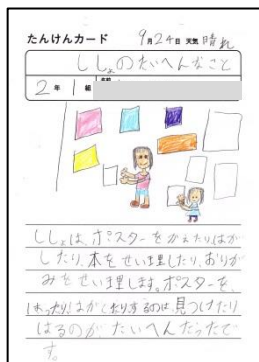 たんけんカード
9月24日 天気 晴れ
ししょのたいへんなこと
2年 1組
名前
ししょは、ポスターをかえたりはが
したり、本をせい理したり、おりが
みをせい理します。ポスターを、
はったりはがしたりするのは、見つけたり
はるのが、たいへんだったで
す。